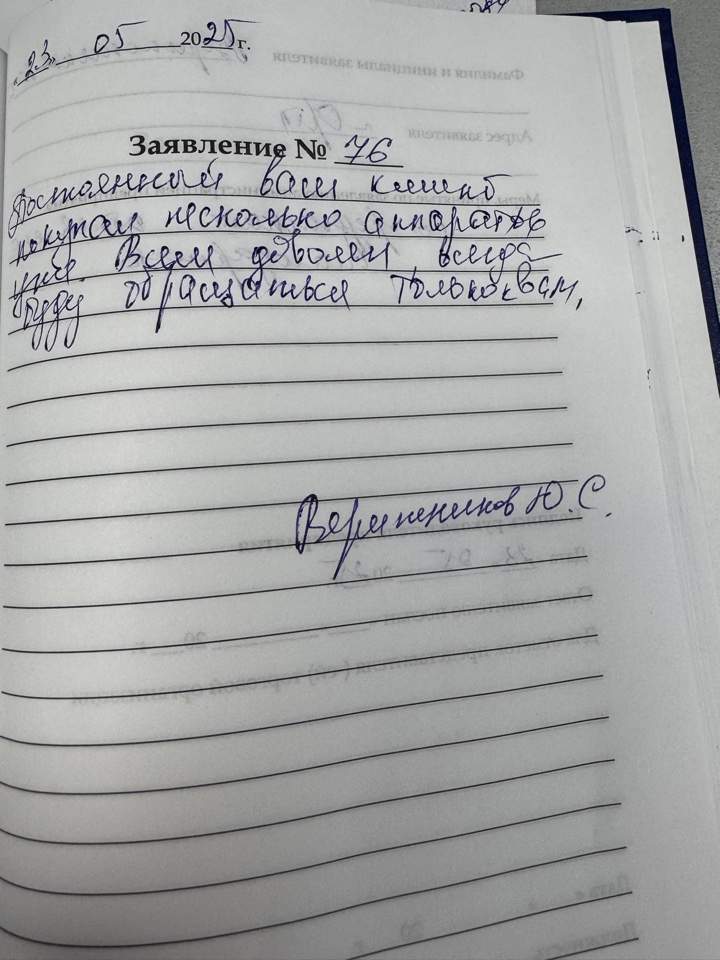 «23» 05 2025 г.
Заявление № 76
Постоянный ваш клиент
покупал несколько аппаратов
уже. Всем доволен всегда
буду обращаться только к вам,
Ю. С.